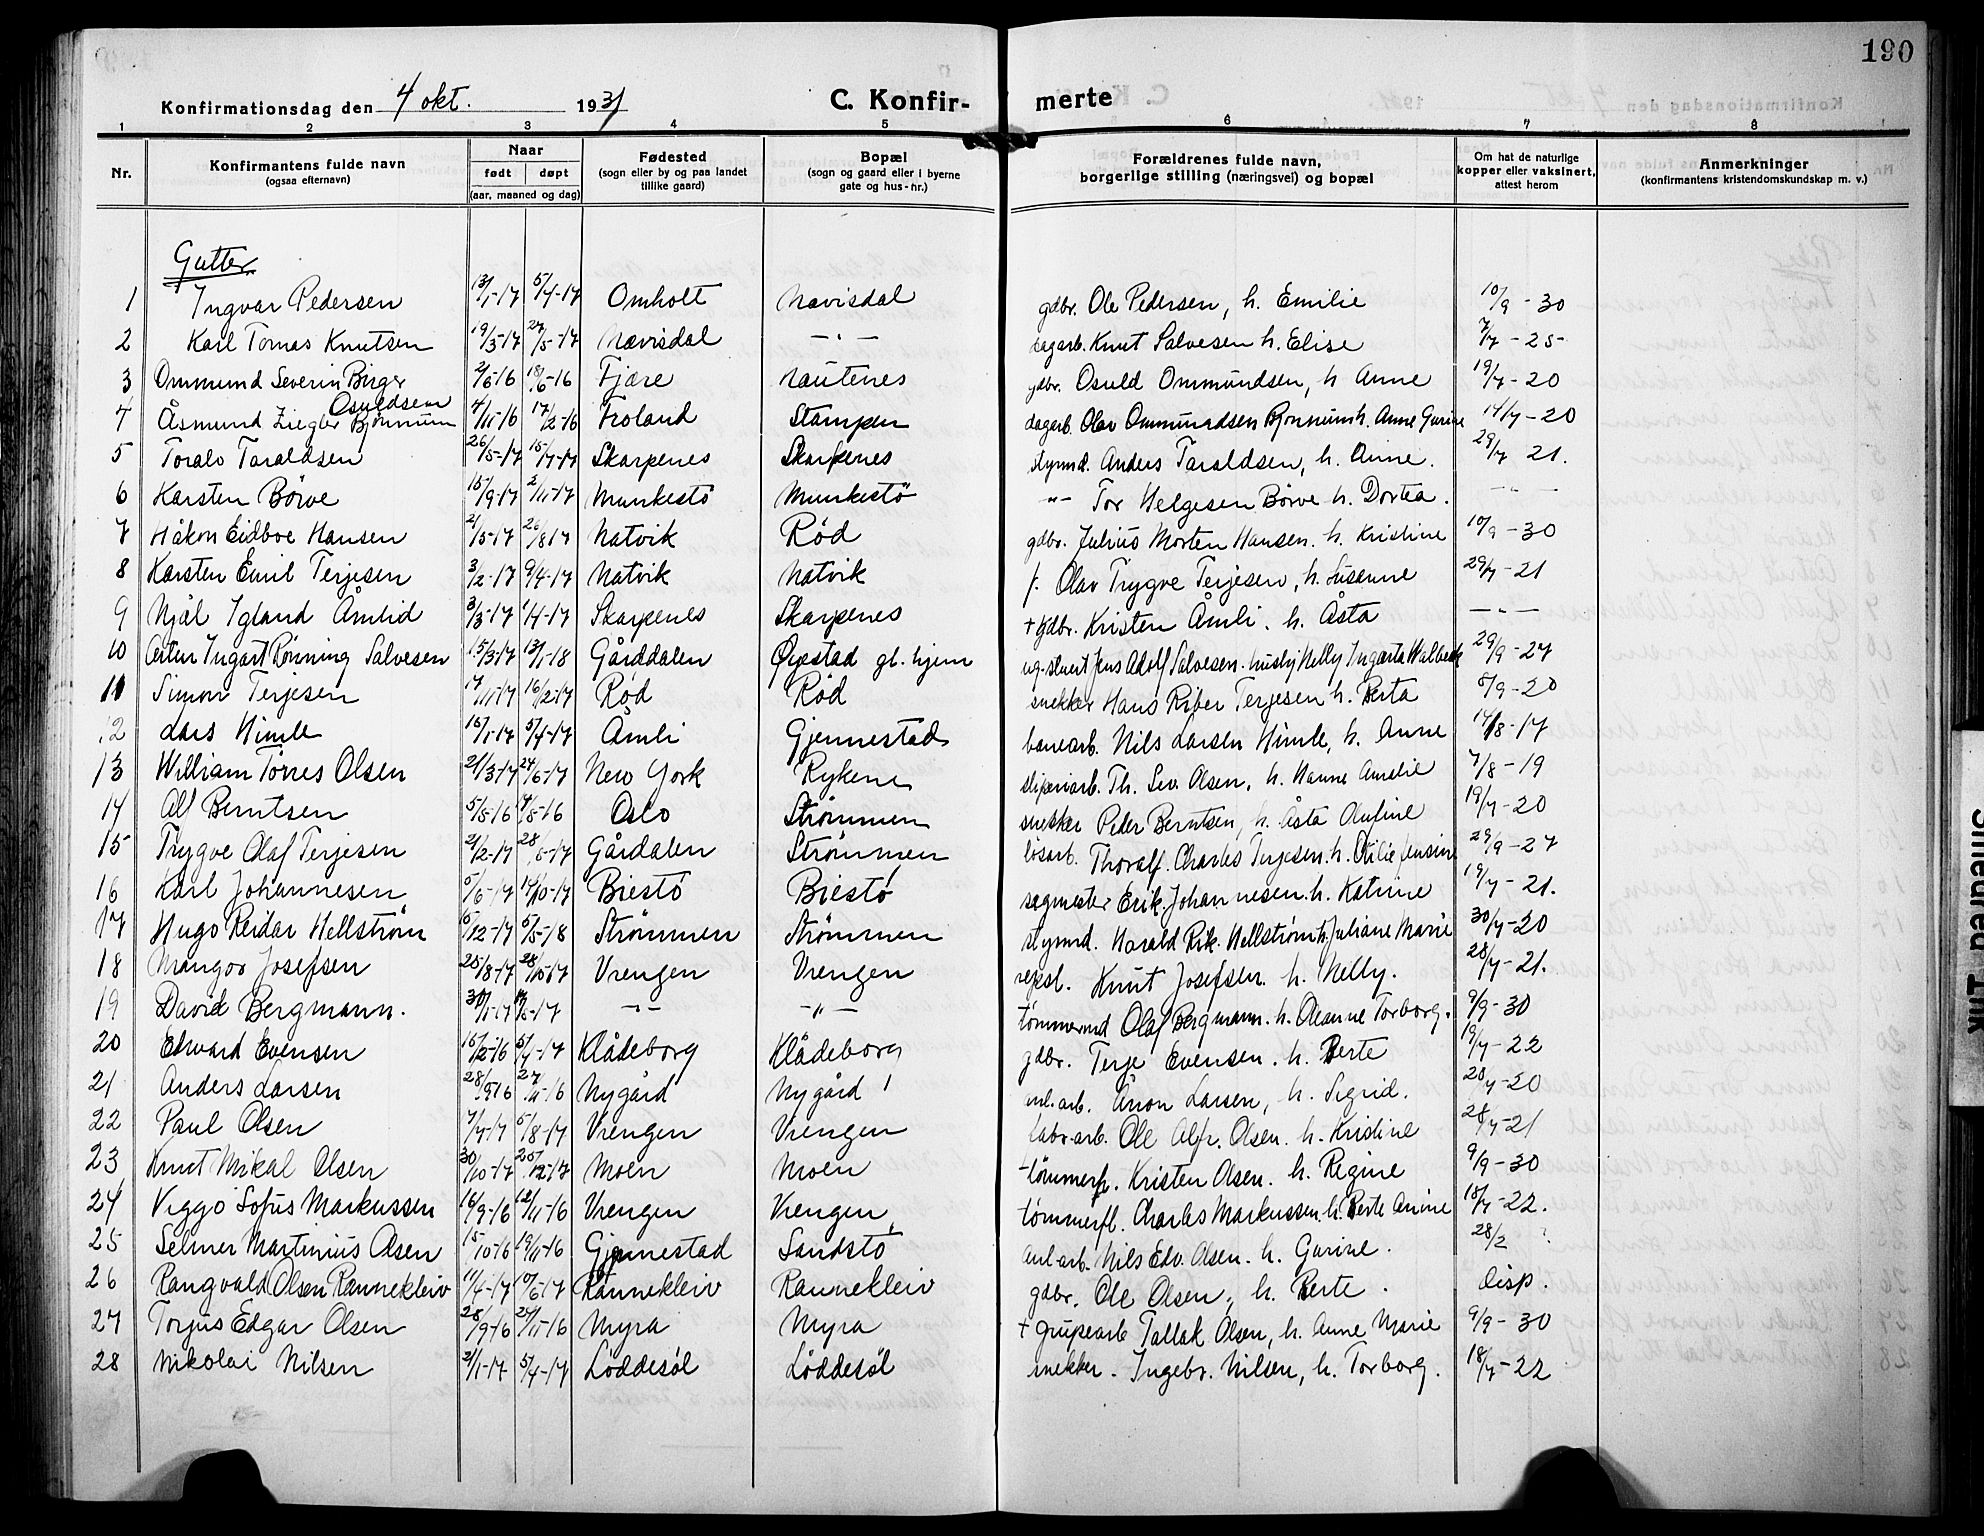 190
Konfirmationsdag den 4 okt. 1931 C. Konfir- merte
1 2 3 4 5 6 7 8
Nr. Konfirmantens fulde navn (ogsaa efternavn) Naar født døpt (aar, maaned og dag) Fødested (sogn eller by og paa landet tillike gaard) Bopæl (sogn og gaard eller i byerne gate og hus-nr.) Forældrenes fulde navn, borgerlige stilling (næringsvei) og bopæl Om hat de naturlige kopper eller vaksinert, attest herom Anmerkninger (konfirmantens kristendomskundskap m. v.)
Gutter
1 Ingvar Pedersen 13/1-17 5/4-17 Omholt Nævisdal gdbr. Ole Pedersen, h. Emilie 10/9-30
2 Karl Tomas Knutsen 19/3-17 27/5-17 Nævisdal -"- dagarb. Knut Salvesen h. Elise 7/7-25
3 Ommund Severin Birger Osuldsen 2/6-16 18/6-16 Fjære Nautenes gdbr. Osuld Ommundsen, h Anne 19/7-20
4 Åsmund Ziegler Bjønnum 4/11-16 17/2-16 Froland Stampen dagarb. Olav Ommundsen Bjønnum h. Anne Gurine 14/7-20
5 Toralv Taraldsen 26/5-17 15/7-17 Skarpenes Skarpenes styrmd. Anders Taraldsen, h. Anne. 29/7 21.
6 Karsten Börve 15/9-17 2/11-17 Munkestö Munkestö -"- Tor Helgesen Börve h. Dortea. -"-
7 Håkon Eidbve Hansen 21/5-17 26/8 17 Natvik Röd gdbr. Julius Morten Hansen. h. Kristine 10/9-30
8 Karsten Emil Terjesen 3/2-17 9/4-17 Natvik Natvik f. Olav Trygve Terjesen, h. Susanne 29/7-21
9 Njål Igland Åmlid 3/3-17 1/4-17 Skarpenes Skarpenes + gdbr. Kristen Åmli. h. Åsta -"-
10 Artur Ingart Rönning Salvesen 15/3-17 13/1-18 Gårddalen Øyestad gl. hjem ug. stuert Jens Adolf Salvesen. hushj Nelly Ingarta Walbeck 29/9-27
11 Simon Terjesen 17/11-17 16/2-17 Röd Röd snekker Hans Riber Terjesen h. Berta 5/9-20
12 Lars Himle 15/1-17 5/4-17 Åmli Gjennestad banearb. Nils Larsen Himle, h. Anne 14/8-17
13 William Torres Olsen 21/3-17 24/6-17 New York Rykene sliperiarb. Th. Sev. Olsen, h. Hanne Amelie 7/8-19
14 Alf Berntsen 5/5-16 /8-16 Oslo Strömmen snekker Peder Berntsen, h. Åsta Olufine 19/7-20
15 Trygve Olaf Terjesen 21/2-17 28/5-17 Gårdalen Strömmen løsarb. Thoralf Charles Terjesen. h. Otilie Jensine 29/9-27
16 Karl Johannesen 5/6-17 14/10-17 Biestö Biestö sagmester Erik Johannesen. h. Katrine 19/7-21.
17 Hugo Reidar Hellström 15/12-17 5/5-18 Strömmen Strömmen styrmd. Harald Rik. Hellström h. Juliane Marie 30/7-20
18 Mangor Josefsen 25/8-17 28/10-17 Vrengen Vrengen repsl. Knut Josefsen. h. Nelly. 28/7-21.
19 David Bergmann. 30/1-17 /5-17 -"- -"- tømmermd Olaf Bergmann. h. Oleanne Torborg. 9/9-30
20 Edvard Evensen 16/12-16 5/4-17 Klådeborg Klådeborg gdbr. Terje Evensen. h. Berte 19/7-22
21 Anders Larsen 28/9 16 27/11-16 Nygård Nygård anl. arb. Anon Larsen, h. Sigrid. 28/7-20
22 Paul Olsen 7/7-17 5/8-17 Vrengen Vrengen fabr.arb. Ole Alfr. Olsen. h. Kristine 28/7-21
23 Knut Mikal Olsen 30/10-17 25/12-17 Moen Moen tømmerfl. Kristen Olsen. h. Regine 9/9-30
24 Viggo Sofus Markussen 16/9-16 12/11-16 Vrengen Vrengen tømmerfl. Charles Markussen. h. Berte Anine 18/7-22.
25 Selmer Martinius Olsen 15/10-16 19/11-16 Gjennestad Sandstö anl. arb. Nils Edv. Olsen. h. Gurine. 28/2
26 Rangvald Olsen Rannekleiv 11/4-17 10/6-17 Rannekleiv Rannekleiv gdbr. Ole Olsen, h. Berte. disp.
27 Torjus Edgar Olsen 28/9-16 24/11-16 Myra Myra + grubearb Tallak Olsen, h. Anne Marie 9/9-30
28 Nikolai Nilsen 2/1-17 5/4-17 Löddesöl Löddesöl snekker. Ingebr. Nilsen, h. Torborg. 18/7-22